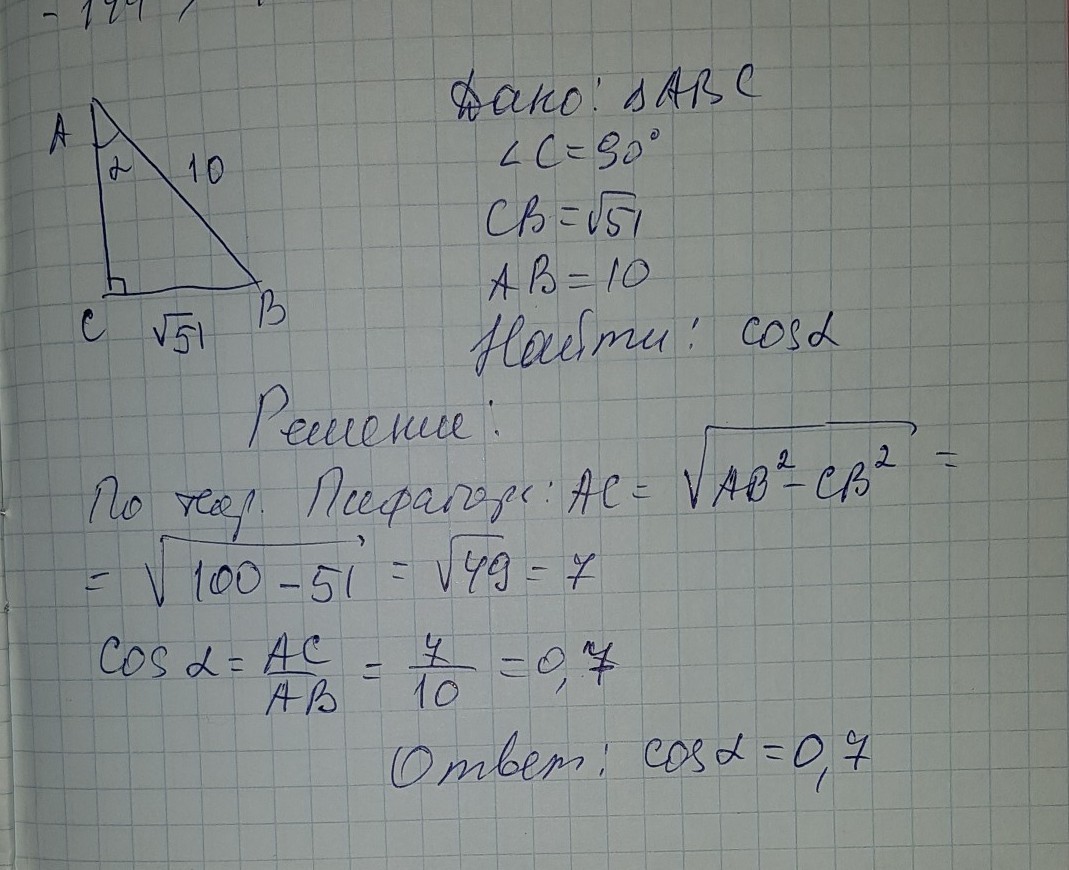 A
α
10
C
√51
B
Дано: ΔABC
∠C=90°
CB=√51
AB=10
Найти: cosα
Решение:
По теор. Пифагора: AC = √AB²-CB² =
= √100-51 = √49 = 7
Cos α = AC/AB = 7/10 = 0,7
Ответ: cosα = 0,7